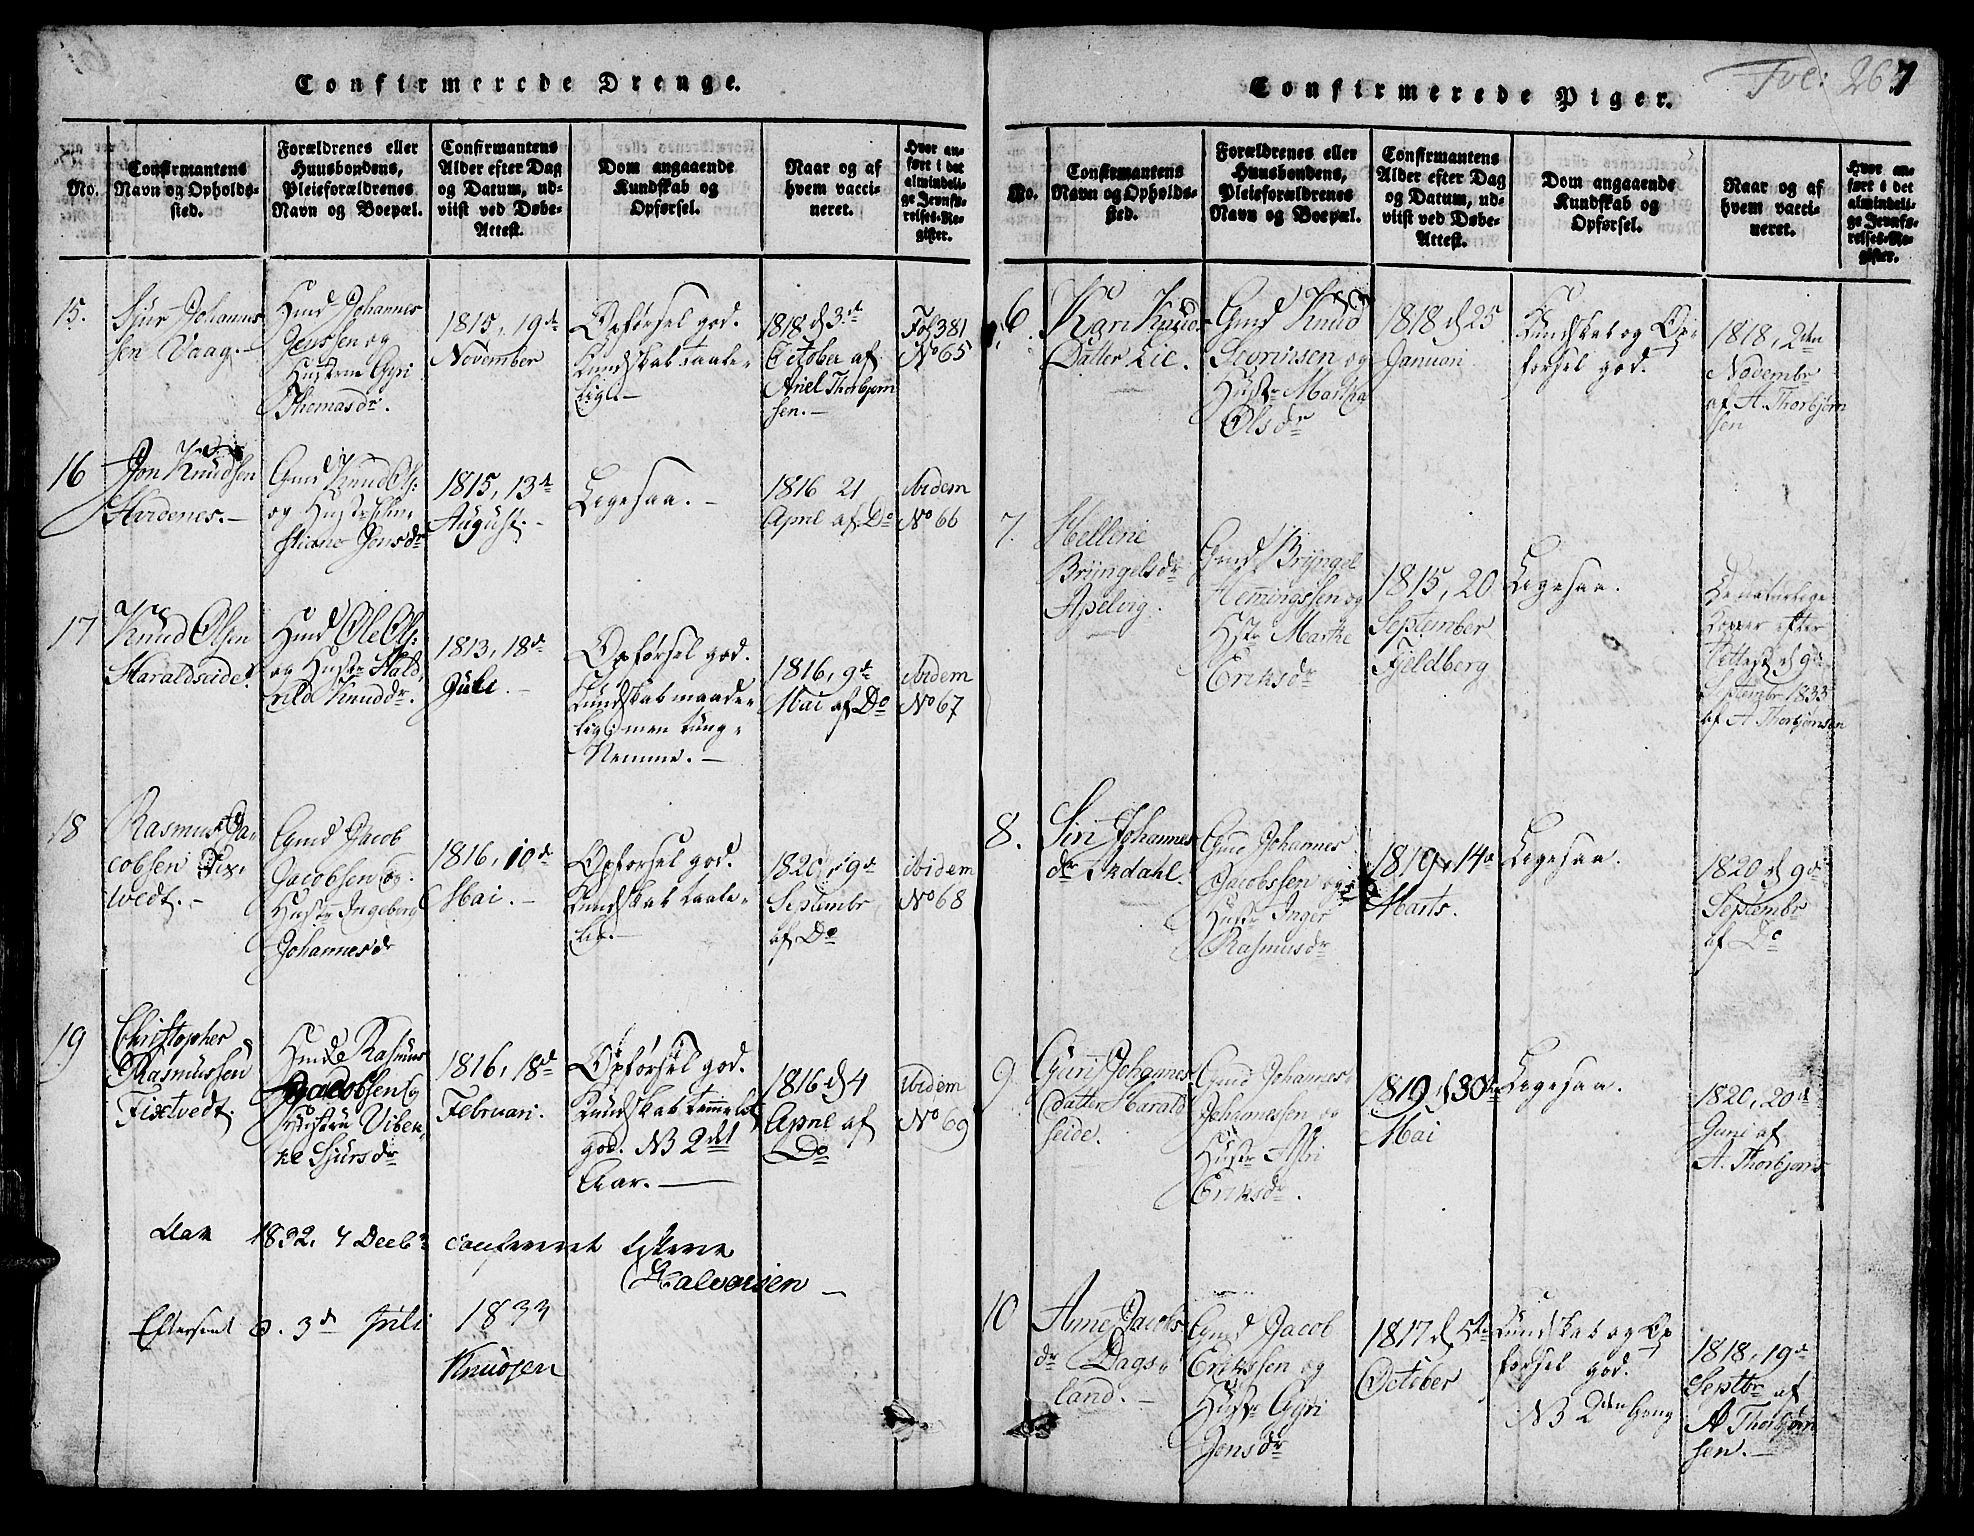 Confirmerede Drenge.
No.
Confirmantens
Navn og Opholds-
sted.
Forældrenes eller
Huusbondens,
Pleieforældrenes
Navn og Boepæl.
Confirmantens
Alder efter Dag
og Datum, ud-
viist ved Døbe-
Attest.
Dom angaaende
Kundskab og
Opførsel.
Naar og af
hvem vacci-
neret.
Hvor an-
ført i det
almindeli-
ge Jevnfø-
relses-Re-
gister.
15.
Sjur Johannes
sen Vaag.
Hmd Johannes
Jenssen og
Hustrue Gyri
Thomasdr.
1815, 19de
November
Opførsel god.
Kundskab taale-
lig.
1818 d 3de
October af
Ariel Thorbjørn
sen.
Fol 381
No 65
16
Jon Knudsen
Hardenes.
Gmd Knud Ols:
og Hustr
stiane Jonsdr
1815, 13de
August.
Ligesaa.
1816 21
April af Do
ibidem
No 66
17
Knud Olsen
Haraldseide.
Hmd Ole Ols:
og Hustr
rild Knuddr.
1813, 18de
Juli.
Opførsel god.
Kundskab maade-
lig; men tung-
Nemme.
1816, 9de
Mai af Do
ibidem
No 67
18
Rasmus Ja-
cobsen Fix-
tvedt.
Gmd Jacob
Jacobsen og
Hustr Ingeborg
Johannesdr
1816, 10de
Mai.
Opførsel god.
Kundskab taale-
lig.
1820, 19de
Septembr
af Do
ibidem
No 68
19
Christopher
Rasmussen
Fixtvedt.
Hmd Rasmus
Jacobsen og
Hustru Viben-
ke Sjursdr
1816, 18de
Februari.
Opførsel god.
Kundskab temmelig
god. NB 2det
Aar.
1816 d 4
April af
Do
ibidem
No 69
Aar 1832, 7 Decbr confereret
Halvorsen
Efterseet d. 3de Juli 1833
Knudsen
Confirmerede Piger.
Fol: 267
No.
Confirmantens
Navn og Opholds-
sted.
Forældrenes eller
Huusbondens,
Pleieforældrenes
Navn og Boepæl.
Confirmantens
Alder efter Dag
og Datum, ud-
viist ved Døbe-
Attest.
Dom angaaende
Kundskab og
Opførsel.
Naar og af
hvem vacci-
neret.
Hvor an-
ført i det
almindeli-
ge Jevnfø-
relses-Re-
gister.
6.
Kari Knud-
Datter Lie.
Gmd Knud
og
Hustr Martha
Olsdr
1818 d 25
Januari
Kundskab og Op-
førsel god.
1818, 2den
Novembr
af A. Thorbjørn
sen
7.
Hellene
Bryngelsdr
Apelvig.
Gmd Bryngel
Hemmingssen og
Hstr Marthe
Eriksdr
1815, 20
September
Fjeldberg
Ligesaa.
De naturlige
Kopper efter
Attest d 9de
Septembr 1833
af A Thorbjørnsen
8.
Siri Johannes
dr Akdahl.
Gmd Johannes
Jacobssen og
Hustr Inger
Rasmusdr
1819, 14de
Marts.
Ligesaa.
1820 d 9de
Septembr
af Do
9
Guri Johannes
datter Harald
seide.
Gmd Johannes
Johannessen og
Hustr Astri
Eriksdr.
1819 d 30te
Mai
Ligesaa.
1820, 20de
Juni af
A. Thorbjørns
10
Anne Jacobs
dr Dags-
land.
Gmd Jacob
Erikssen og
Hustr Gyri
Jonsdr
1817 d 5te
October
Kundskab og Op
førsel god.
NB 2den Gang
1818, 19de
Septbr af
A Thorbjørn
sen.